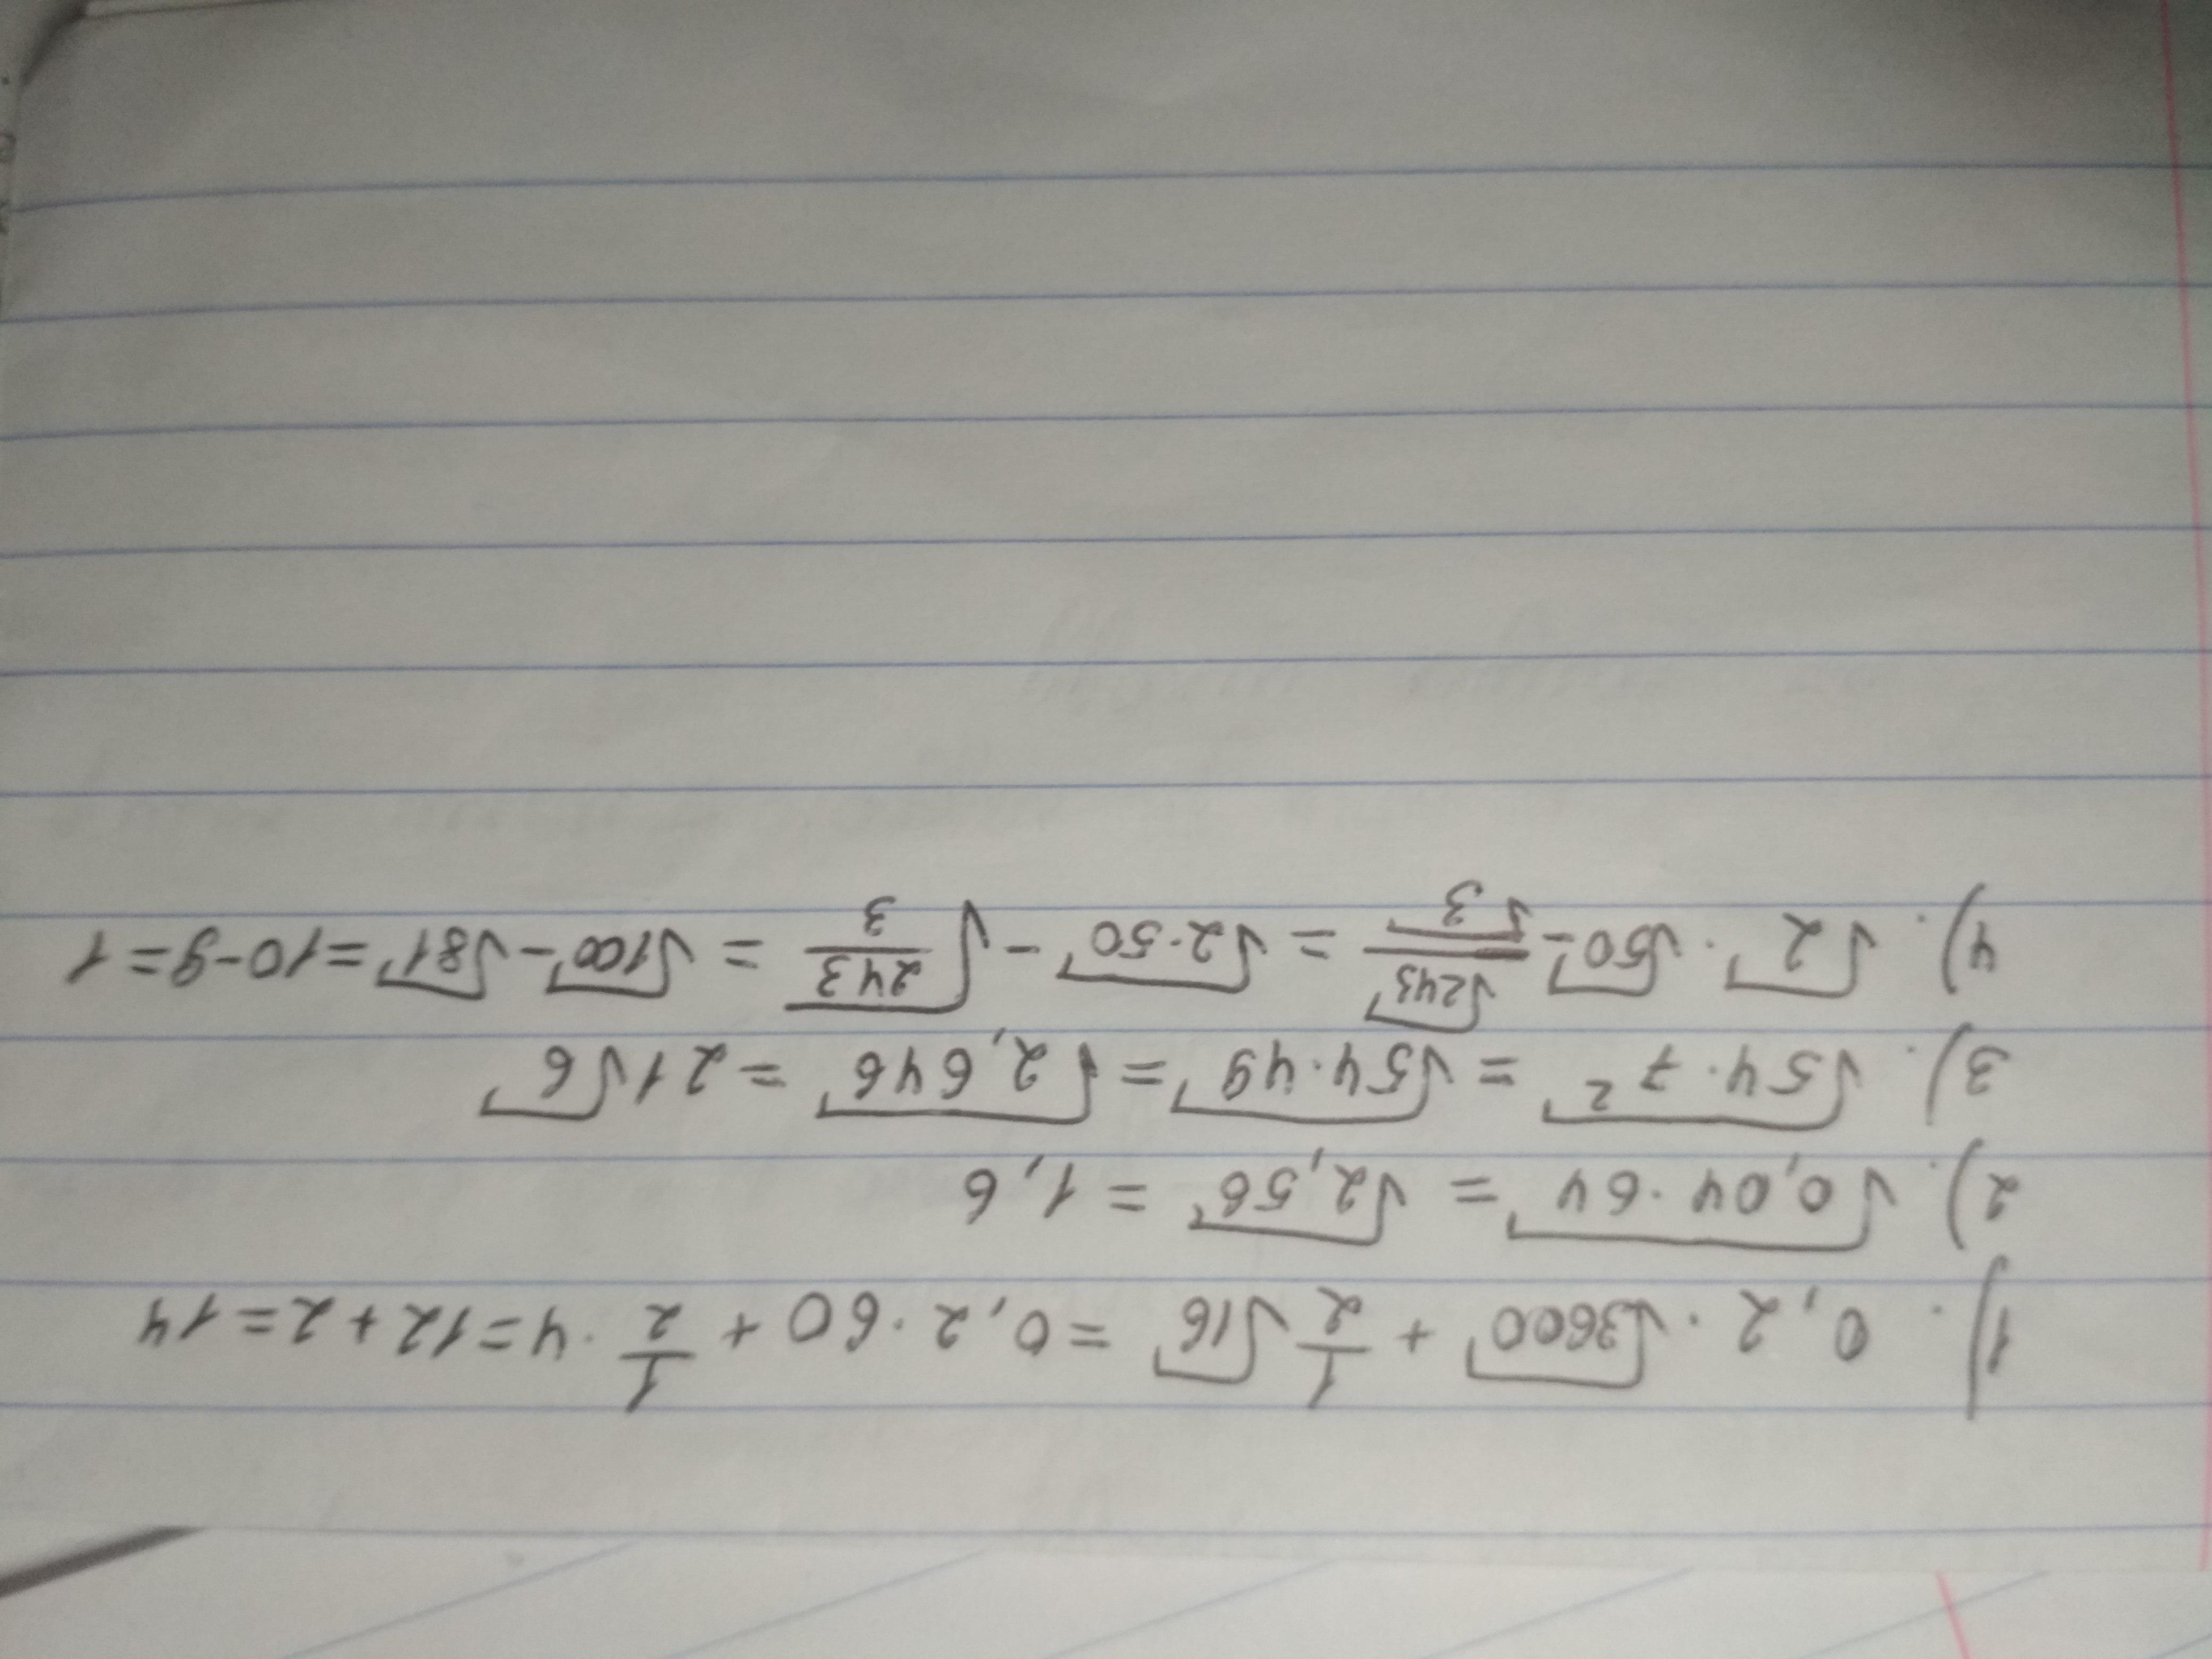 1). 0,2 · √3600 + 1/2 √16 = 0,2 · 60 + 1/2 · 4 = 12 + 2 = 14
2). √0,04 · 64 = √2,56 = 1,6
3). √54 · 7² = √54 · 49 = √2,646 = 21√6
4). √2 · √50 - √243/√3 = √2·50 - √243/3 = √100 - √81 = 10-9 = 1